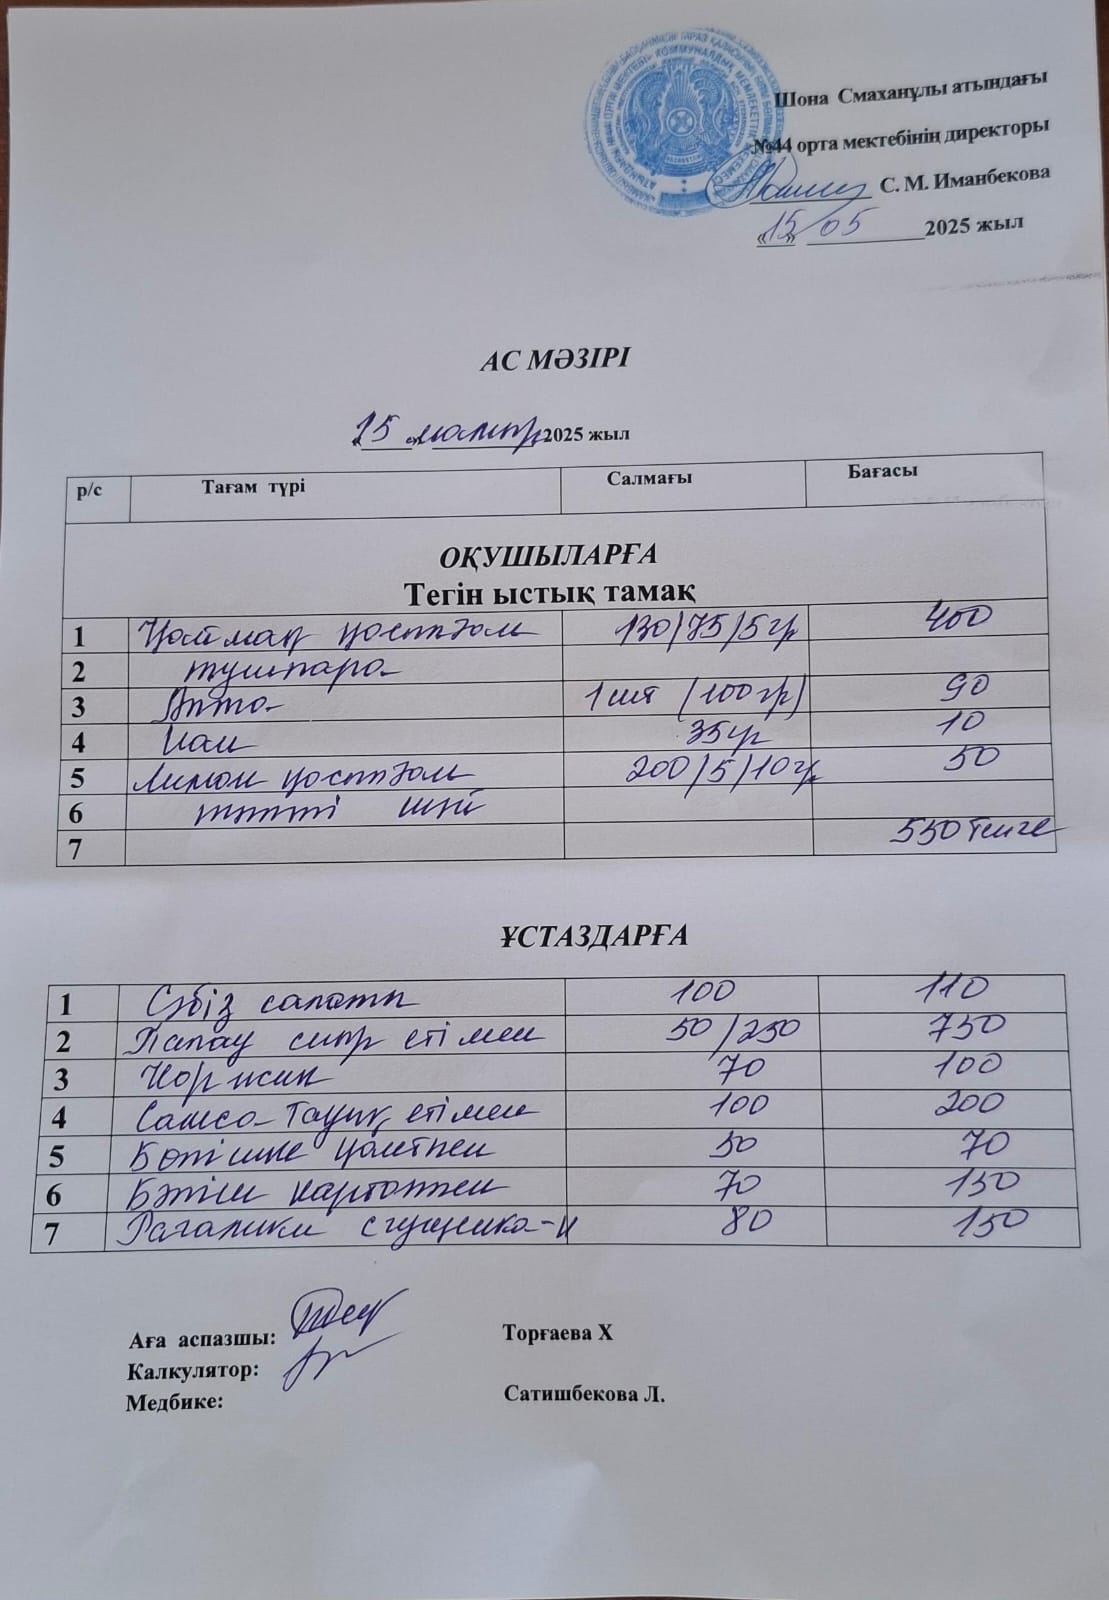 Шона Смаханұлы атындағы
№44 орта мектебінің директоры
С. М. Иманбекова
«15» 05 2025 жыл
АС МӘЗІРІ
«15» мамыр 2025 жыл
р/с Тағам түрі Салмағы Бағасы
ОҚУШЫЛАРҒА
Тегін ыстық тамақ
1 Қаймақ қосылған 130/75/5гр 400
2 тушпара
3 Алма 1шт (100гр) 90
4 Нан 35гр 10
5 Лимон қосылған 200/5/10гр 50
6 тәтті шәй
7 550 теңге
ҰСТАЗДАРҒА
1 Сәбіз салаты 100 110
2 Палау сиыр етімен 50/250 750
3 Коржик 70 100
4 Самса тауық етімен 100 200
5 Бәліш 50 70
6 Бәліш картоппен 70 150
7 Рагалики сгущенка-й 80 150
Аға аспазшы: Торғаева Х
Калкулятор:
Медбике: Сатишбекова Л.